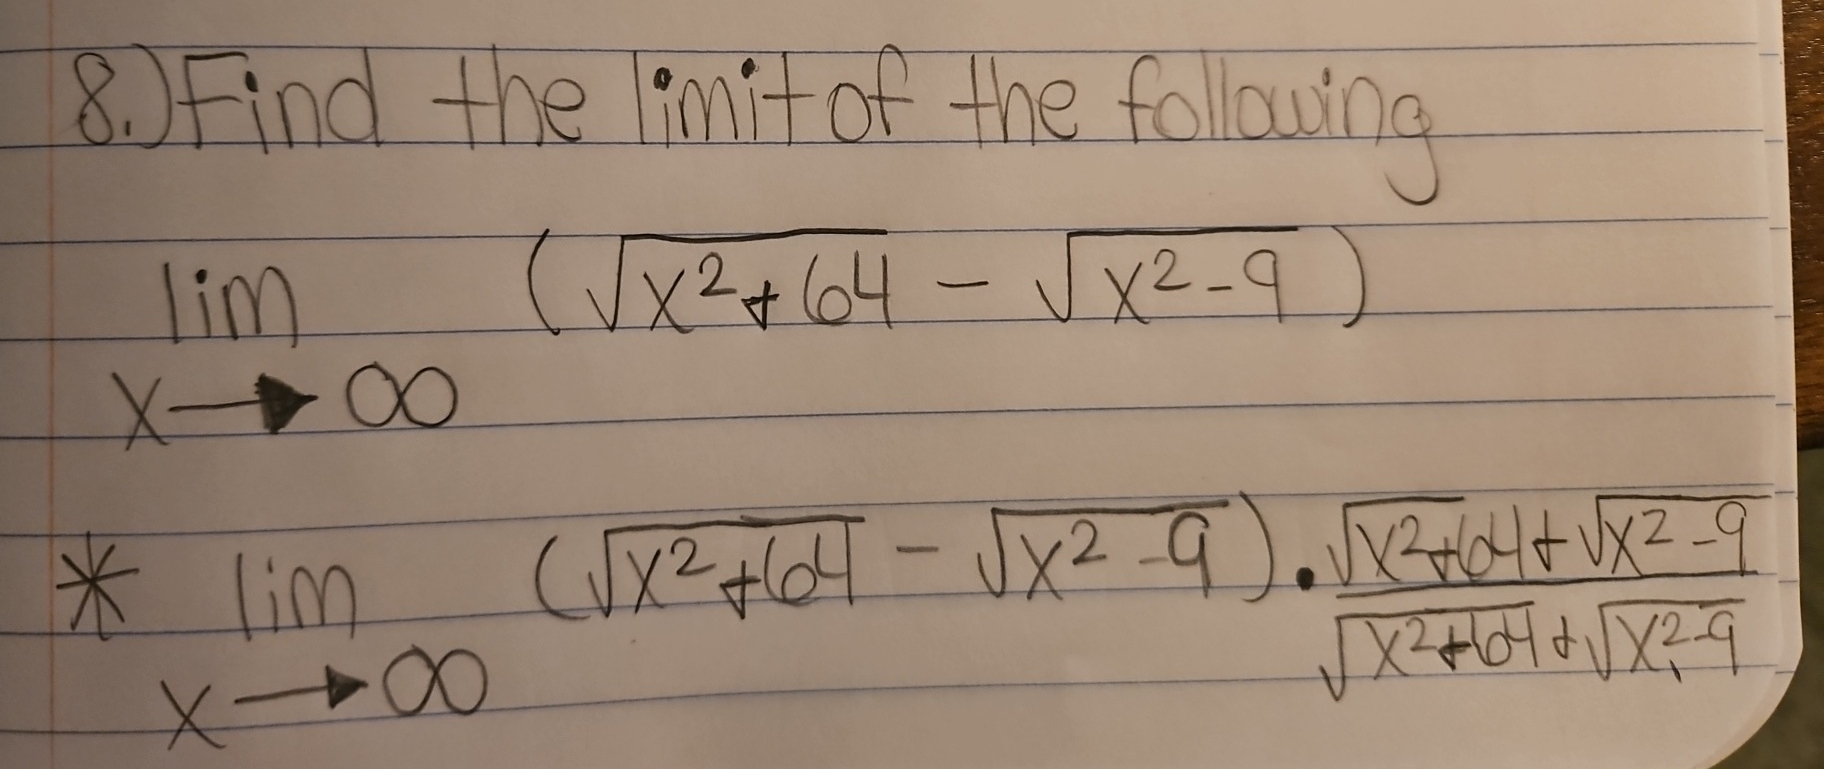 8.) Find the limit of the following
lim (√x²+64 - √x²-9)
x→∞
* lim (√x²+64 - √x²-9) · √x²+64+√x²-9
√x²+64+√x²-9
x→∞